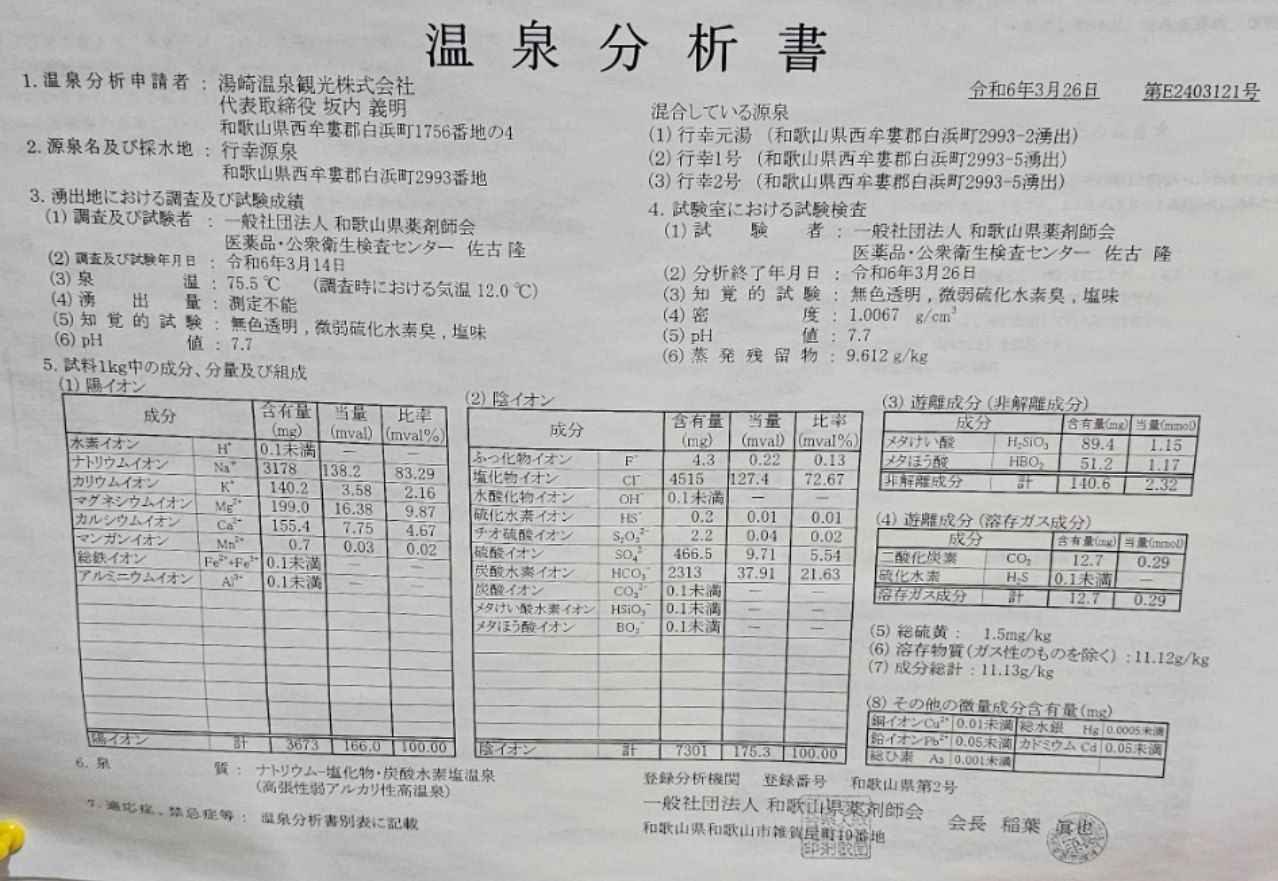 温泉分析書
1. 温泉分析申請者 : 湯崎温泉観光株式会社
代表取締役 坂内 義明
和歌山県西牟婁郡白浜町1756番地の4
2. 源泉名及び採水地 : 行幸源泉
和歌山県西牟婁郡白浜町2993番地
3. 湧出地における調査及び試験成績
(1) 調査及び試験者 : 一般社団法人 和歌山県薬剤師会
医薬品・公衆衛生検査センター 佐古 隆
(2) 調査及び試験年月日 : 令和6年3月14日
(3) 泉温 : 75.5 ℃ (調査時における気温 12.0 ℃)
(4) 湧出量 : 測定不能
(5) 知覚的試験 : 無色透明 , 微弱硫化水素臭 , 塩味
(6) pH値 : 7.7
令和6年3月26日 第E2403121号
混合している源泉
(1) 行幸元湯 (和歌山県西牟婁郡白浜町2993-2湧出)
(2) 行幸1号 (和歌山県西牟婁郡白浜町2993-5湧出)
(3) 行幸2号 (和歌山県西牟婁郡白浜町2993-5湧出)
4. 試験室における試験検査
(1) 試験者 : 一般社団法人 和歌山県薬剤師会
医薬品・公衆衛生検査センター 佐古 隆
(2) 分析終了年月日 : 令和6年3月26日
(3) 知覚的試験 : 無色透明 , 微弱硫化水素臭 , 塩味
(4) 密度 : 1.0067 g/cm³
(5) pH値 : 7.7
(6) 蒸発残留物 : 9.612 g/kg
5. 試料1kg中の成分、分量及び組成
(1) 陽イオン
成分 含有量(mg) 当量(mval) 比率(mval%)
水素イオン H⁺ 0.1未満 — —
ナトリウムイオン Na⁺ 3178 138.2 83.29
カリウムイオン K⁺ 140.2 3.58 2.16
マグネシウムイオン Mg²⁺ 199.0 16.38 9.87
カルシウムイオン Ca²⁺ 155.4 7.75 4.67
マンガンイオン Mn²⁺ 0.7 0.03 0.02
総鉄イオン Fe²⁺+Fe³⁺ 0.1未満 — —
アルミニウムイオン Al³⁺ 0.1未満 — —
陽イオン 計 3673 166.0 100.00
(2) 陰イオン
成分 含有量(mg) 当量(mval) 比率(mval%)
ふっ化物イオン F⁻ 4.3 0.22 0.13
塩化物イオン Cl⁻ 4515 127.4 72.67
水酸化物イオン OH⁻ 0.1未満 — —
硫化水素イオン HS⁻ 0.2 0.01 0.01
チオ硫酸イオン S₂O₃²⁻ 2.2 0.04 0.02
硫酸イオン SO₄²⁻ 466.5 9.71 5.54
炭酸水素イオン HCO₃⁻ 2313 37.91 21.63
炭酸イオン CO₃²⁻ 0.1未満 — —
メタけい酸水素イオン HSiO₃⁻ 0.1未満 — —
メタほう酸イオン BO₂⁻ 0.1未満 — —
陰イオン 計 7301 175.3 100.00
(3) 遊離成分 (非解離成分)
成分 含有量(mg) 当量(mmol)
メタけい酸 H₂SiO₃ 89.4 1.15
メタほう酸 HBO₂ 51.2 1.17
非解離成分 計 140.6 2.32
(4) 遊離成分 (溶存ガス成分)
成分 含有量(mg) 当量(mmol)
二酸化炭素 CO₂ 12.7 0.29
硫化水素 H₂S 0.1未満 —
溶存ガス成分 計 12.7 0.29
(5) 総硫黄 : 1.5mg/kg
(6) 溶存物質(ガス性のものを除く) : 11.12g/kg
(7) 成分総計 : 11.13g/kg
(8) その他の微量成分含有量(mg)
銅イオンCu²⁺ 0.01未満 総水銀 Hg 0.0005未満
鉛イオンPb²⁺ 0.05未満 カドミウム Cd 0.05未満
総ひ素 As 0.001未満
6. 泉質 : ナトリウム-塩化物・炭酸水素塩温泉
(高張性弱アルカリ性高温泉)
7. 適応症、禁忌症等 : 温泉分析書別表に記載
登録分析機関 登録番号 和歌山県第2号
一般社団法人 和歌山県薬剤師会 会長 稲葉 眞也
和歌山県和歌山市雑賀屋町19番地